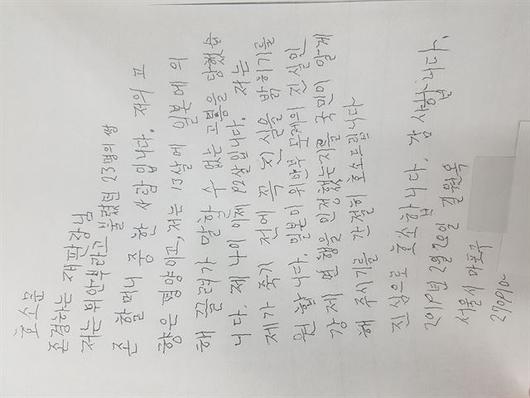 호소문
존경하는 재판장님
저는 위안부라고 불렸던 23명의 생
존 할머니 중 한 사람 입니다. 저의 고
향은 평양이고, 저는 13살에 일본에 의
해 끌려가 말할 수 없는 고통을 당했습
니다. 제 나이 이제 92살입니다. 저는
제가 죽기 전에 꼭 진실을 밝히기를
원합니다. 일본이 위안부 문제의 진실인
강제 연행을 인정했는지를 국민이 알게
해 주시기를 간절히 호소드립니다
진심으로 호소합니다. 감사합니다.
2019년 2월 20일 길원옥
서울시 마포구